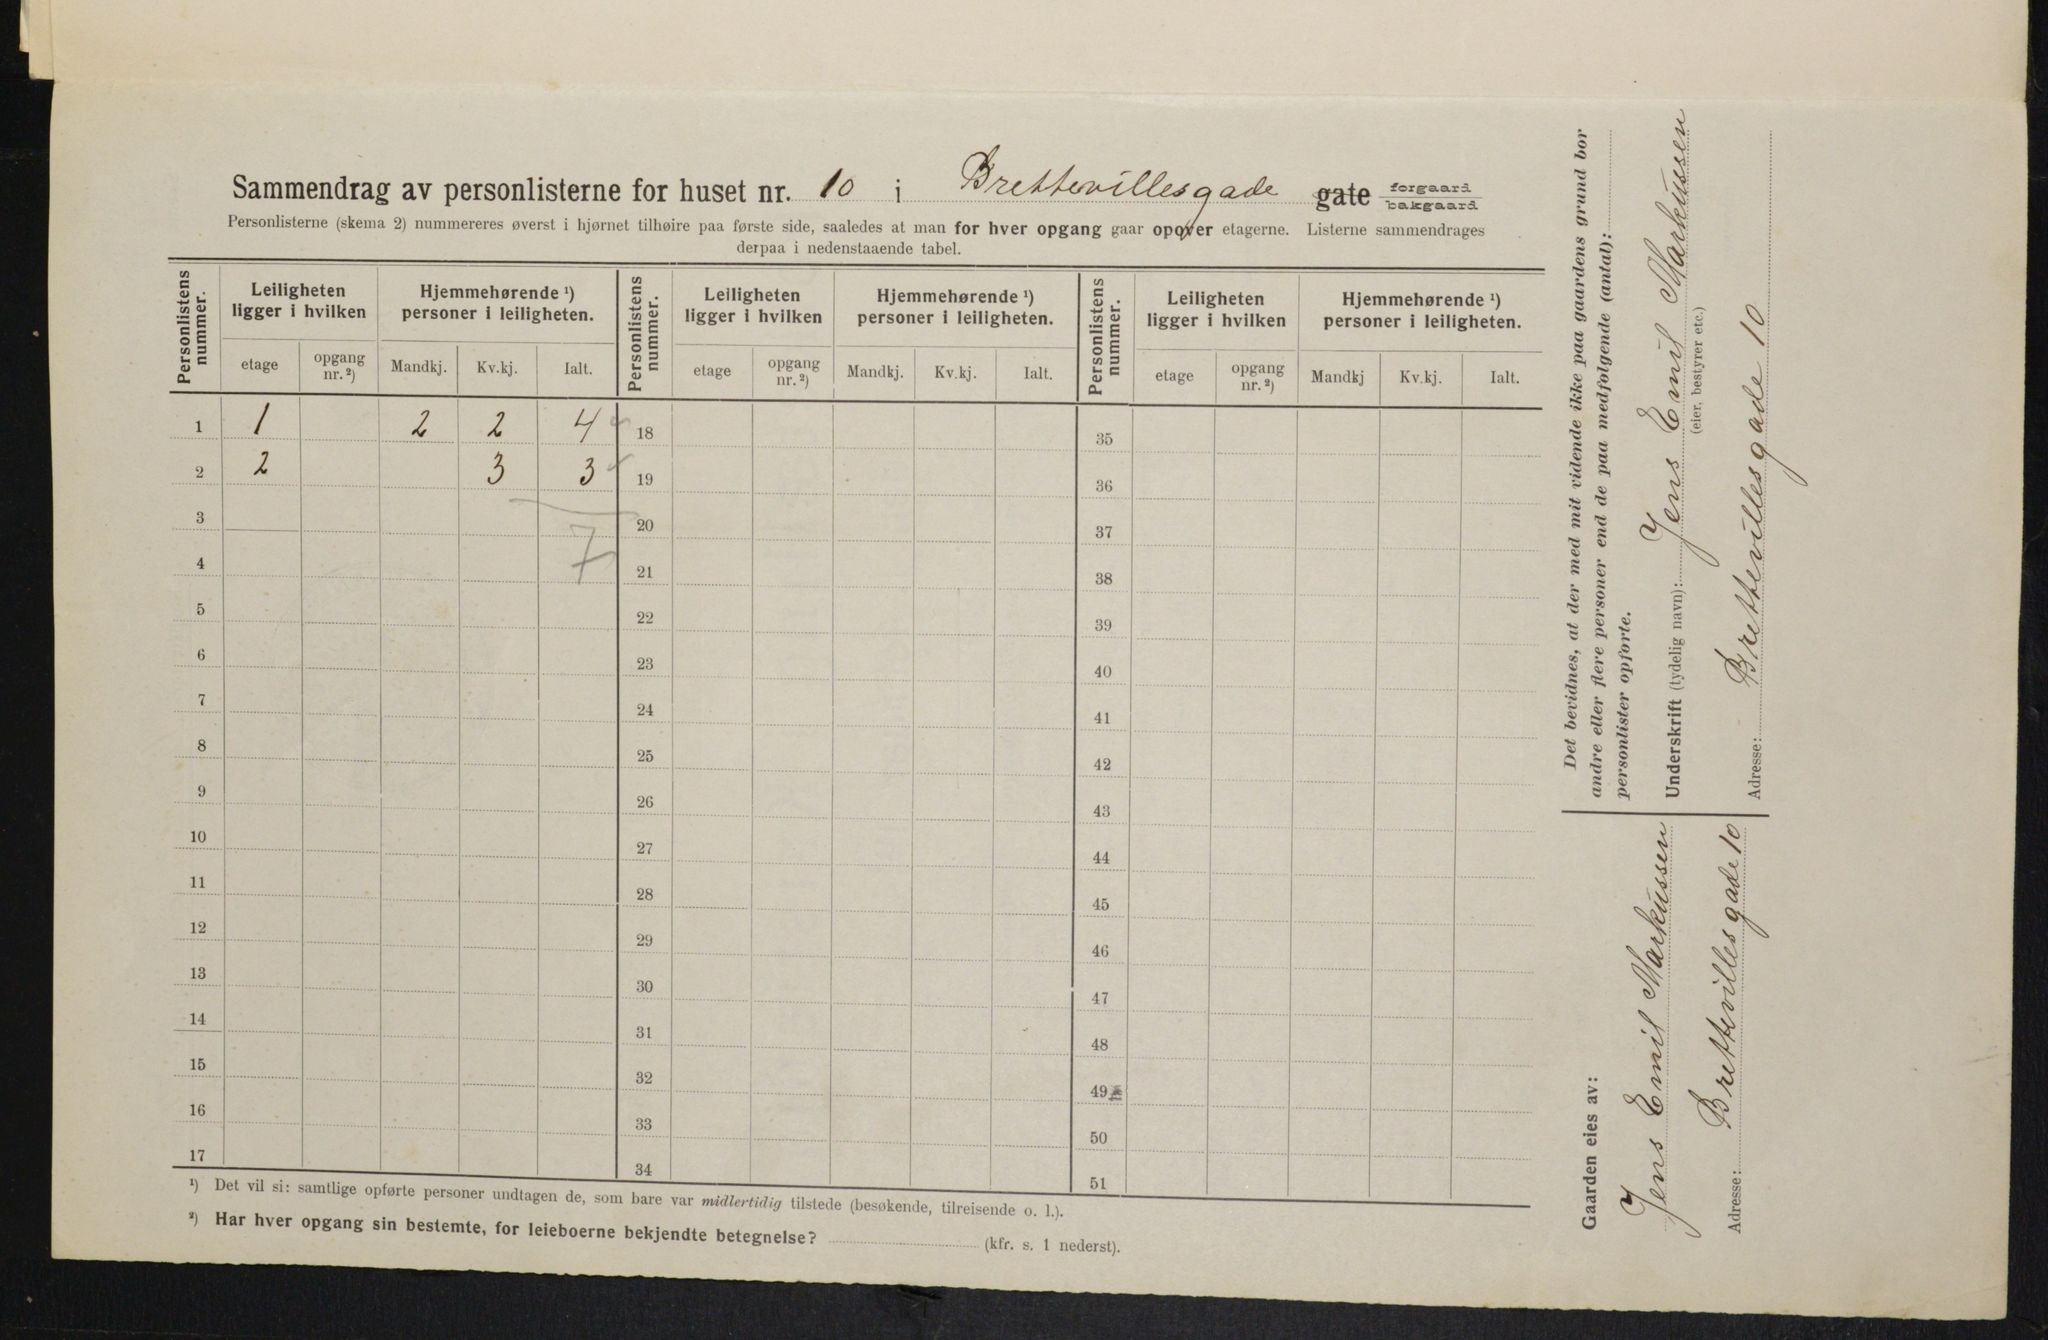 Sammendrag av personlisterne for huset nr. 10 i Brettevillesgade gate forgaard bakgaard
Personlisterne (skema 2) nummereres øverst i hjørnet tilhøire paa første side, saaledes at man for hver opgang gaar opover etagerne. Listerne sammendrages
derpaa i nedenstaaende tabel.
Personlistens nummer. Leiligheten ligger i hvilken Hjemmehørende ¹) personer i leiligheten. Personlistens nummer. Leiligheten ligger i hvilken Hjemmehørende ¹) personer i leiligheten. Personlistens nummer. Leiligheten ligger i hvilken Hjemmehørende ¹) personer i leiligheten.
etage opgang nr. ²) Mandkj. Kv.kj. Ialt. etage opgang nr. ²) Mandkj. Kv.kj. Ialt. etage opgang nr. ²) Mandkj Kv.kj. Ialt.
1 1 2 2 4 18 35
2 2 3 3 19 36
3 20 37
7
4 21 38
5 22 39
6 23 40
7 24 41
8 25 42
9 26 43
10 27 44
11 28 45
12 29 46
13 30 47
14 31 48
15 32 49
16 33 50
17 34 51
¹) Det vil si: samtlige opførte personer undtagen de, som bare var midlertidig tilstede (besøkende, tilreisende o. l.).
²) Har hver opgang sin bestemte, for leieboerne bekjendte betegnelse? (kfr. s. 1 nederst).
Gaarden eies av:
Jens Emil Markussen
Adresse: Brettevillesgade 10
Det bevidnes, at der med mit vidende ikke paa gaardens grund bor
andre eller flere personer end de paa medfølgende (antal):
personlister opførte.
Underskrift (tydelig navn): Jens Emil Markussen
(eier, bestyrer etc.)
Adresse: Brettevillesgade 10